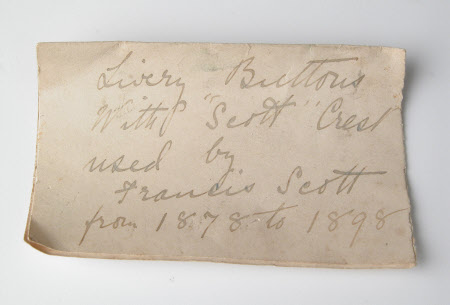 Livery Buttons
With "Scott" Crest
used by
Francis Scott
from 1878 to 1898